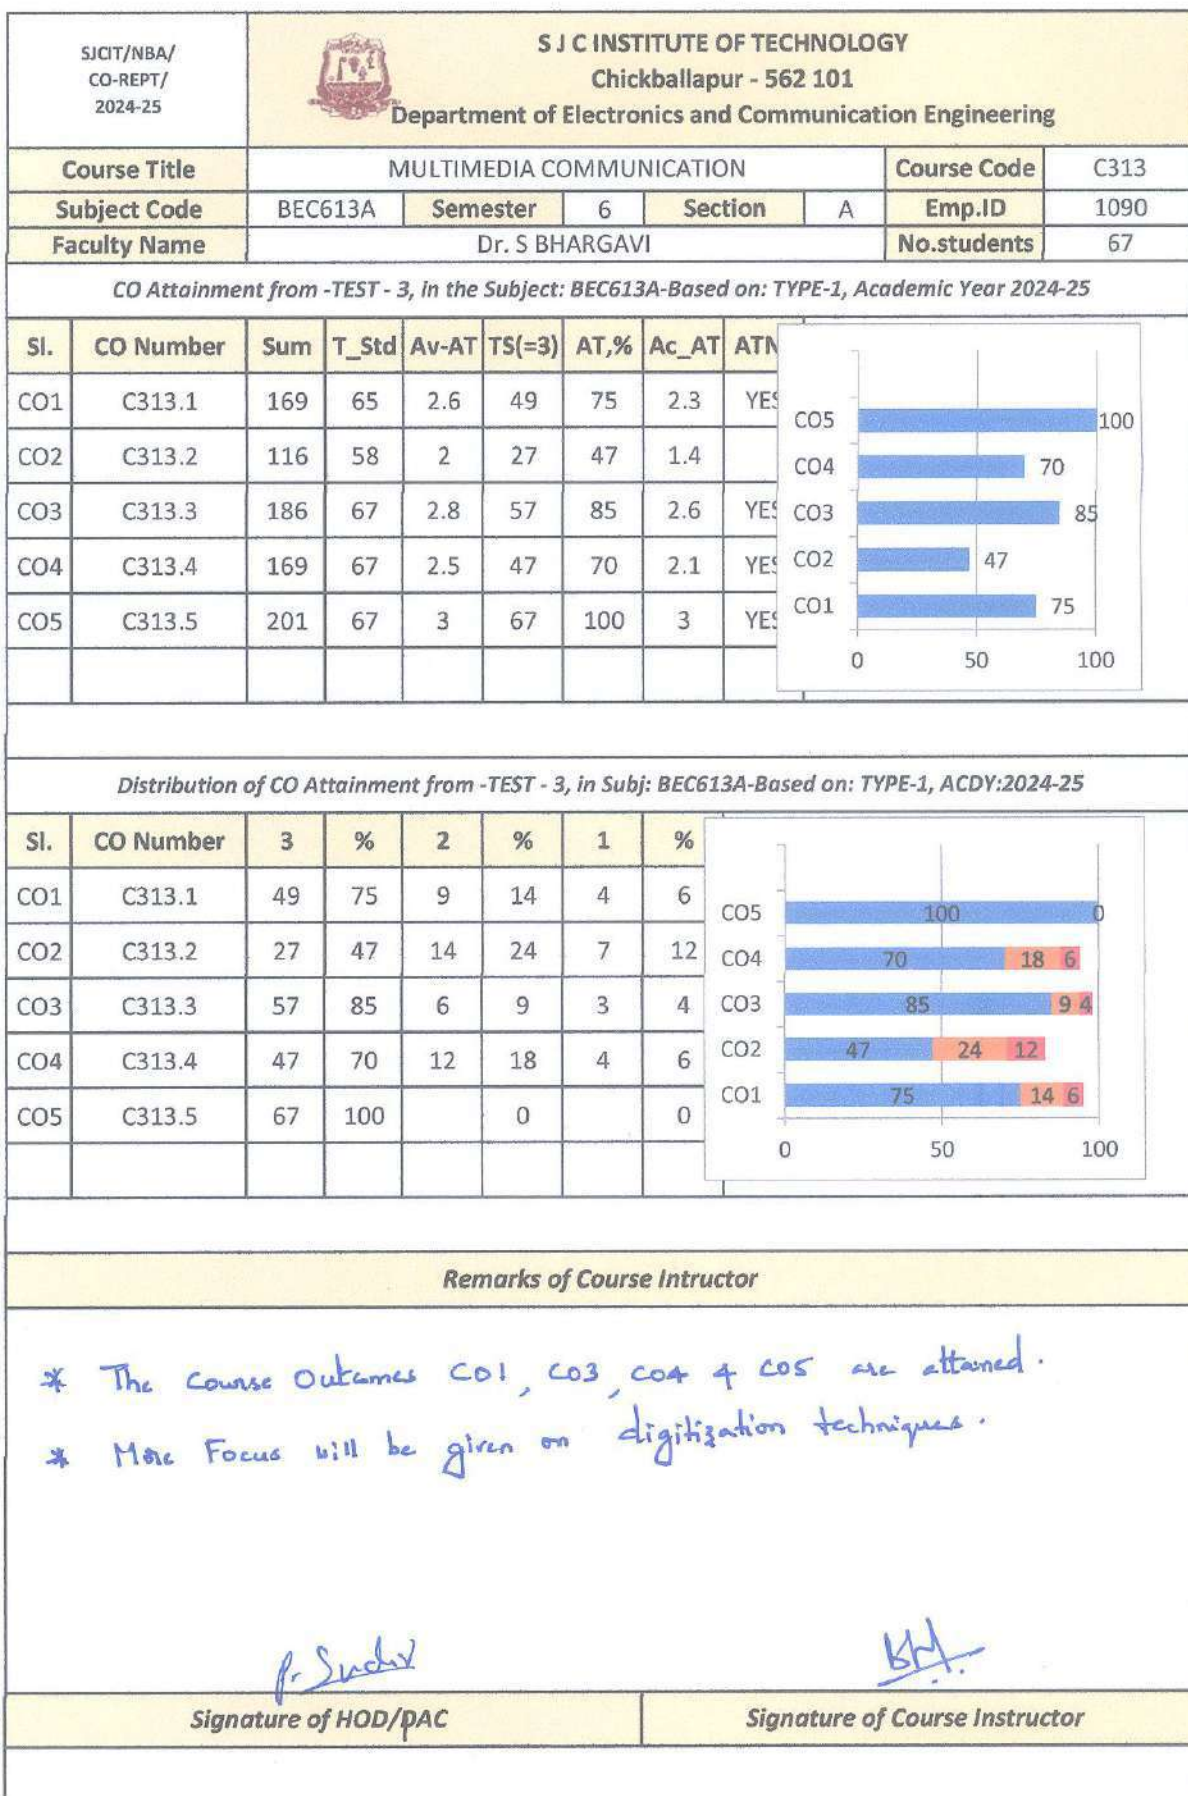 SJCIT/NBA/
CO-REPT/
2024-25
S J C INSTITUTE OF TECHNOLOGY
Chickballapur - 562 101
Department of Electronics and Communication Engineering
Course Title MULTIMEDIA COMMUNICATION Course Code C313
Subject Code BEC613A Semester 6 Section A Emp.ID 1090
Faculty Name Dr. S BHARGAVI No.students 67
CO Attainment from -TEST - 3, in the Subject: BEC613A-Based on: TYPE-1, Academic Year 2024-25
Sl. CO Number Sum T_Std Av-AT TS(=3) AT,% Ac_AT ATN
CO1 C313.1 169 65 2.6 49 75 2.3 YES
CO2 C313.2 116 58 2 27 47 1.4
CO3 C313.3 186 67 2.8 57 85 2.6 YES
CO4 C313.4 169 67 2.5 47 70 2.1 YES
CO5 C313.5 201 67 3 67 100 3 YES
CO5 100
CO4 70
CO3 85
CO2 47
CO1 75
0 50 100
Distribution of CO Attainment from -TEST - 3, in Subj: BEC613A-Based on: TYPE-1, ACDY:2024-25
Sl. CO Number 3 % 2 % 1 %
CO1 C313.1 49 75 9 14 4 6
CO2 C313.2 27 47 14 24 7 12
CO3 C313.3 57 85 6 9 3 4
CO4 C313.4 47 70 12 18 4 6
CO5 C313.5 67 100 0 0
CO5 100 0
CO4 70 18 6
CO3 85 9 4
CO2 47 24 12
CO1 75 14 6
0 50 100
Remarks of Course Intructor
* The Course Outcomes CO1, CO3, CO4 & CO5 are attained.
* More Focus will be given on digitization techniques.
Signature of HOD/PAC Signature of Course Instructor